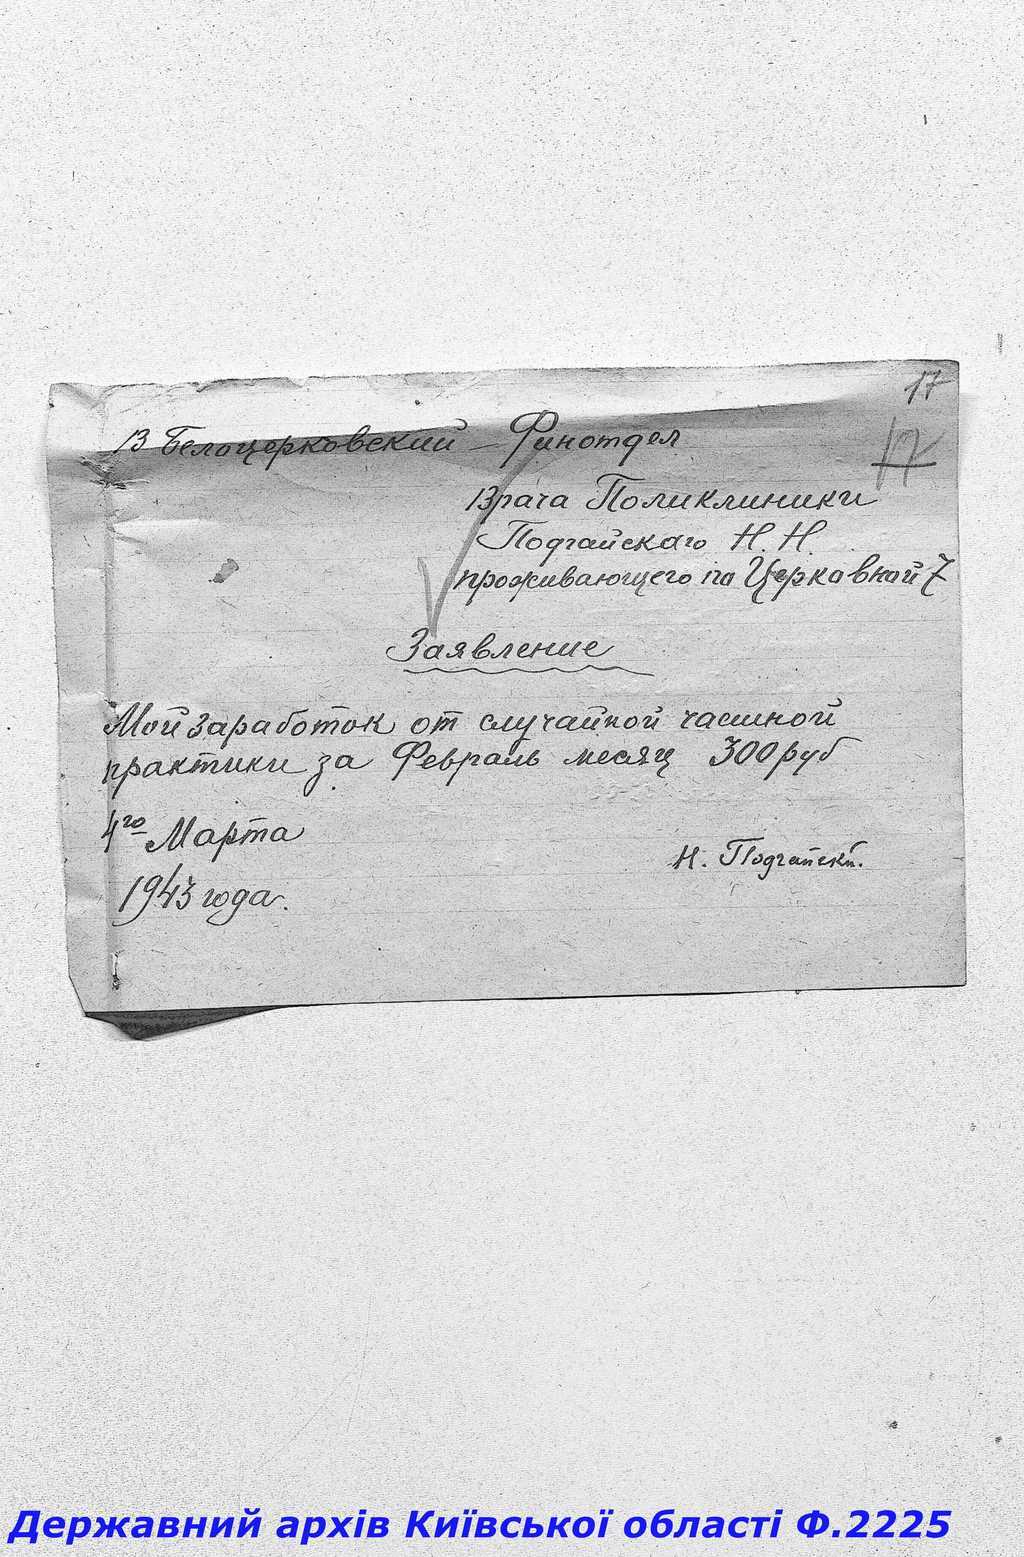 17
17
В Белоцерковский Финотдел
Врача Поликлиники
Подгайскаго Н. Н.
проживающего по Церковной 7
Заявление
Мой заработок от случайной частной
практики за Февраль месяц 300 руб
4го Марта
Н. Подгайский.
1943 года.
Державний архів Київської області Ф.2225